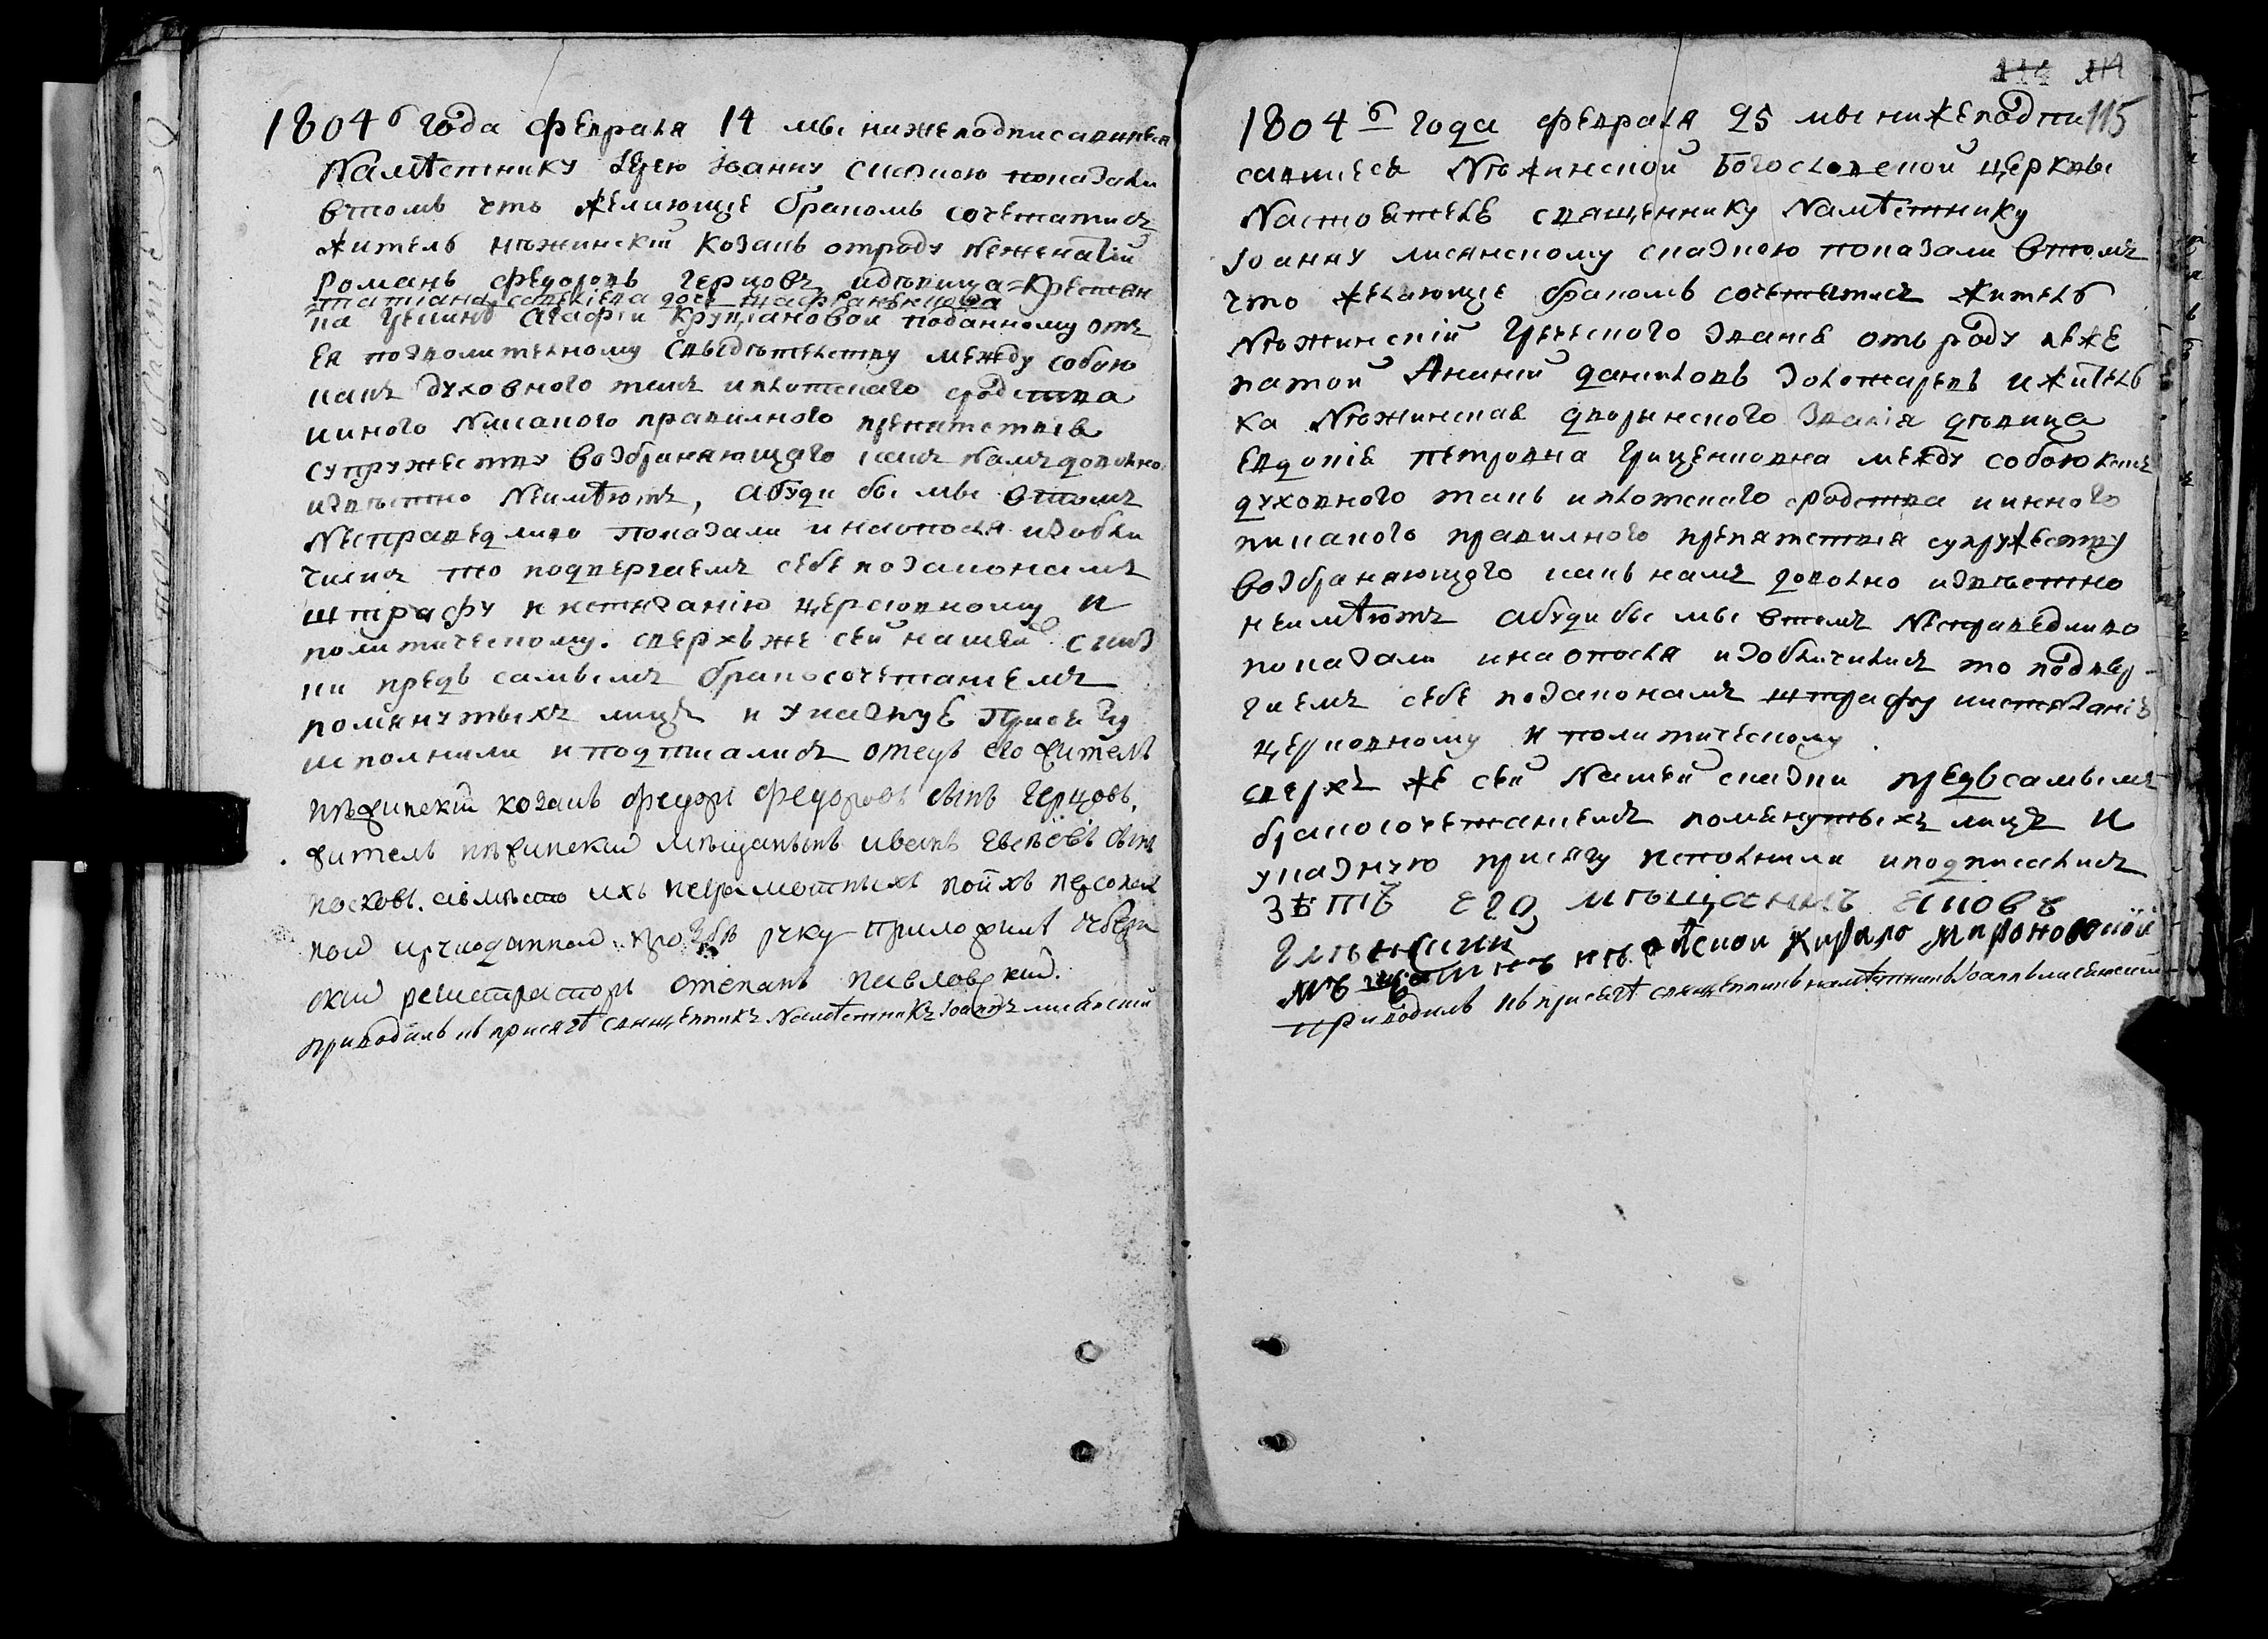 1804 б года февраля 14 мы нижеподписавшиеся
Намѣстнику Іерею Іоанну скаскою показали
втомъ что желающіе бракомъ сочетатись
житель нѣжинскій козакъ отроду неженатій
Романъ Федоровъ Черцовъ идѣвица=Крестян
ка Агафіи поданному отъ
ея позволителному свыдѣтелству между собою
какъ духовного такъ иплотскаго сродства
ииного писаного правилного препятствія
супружеству возбраняющаго какъ намъ доволно
извѣстно Неимѣютъ, абуди бы мы втомъ
Несправедливо показали инаопосля изобли
чились то подвергаемъ себе позаконамъ
штрафу и истязанію церковному и
политическому. сверхъ же сей нашей сказ
ки предъ самымъ бракосочетаніемъ
помянутыхъ лицъ и указную присягу
исполнили и подписались отецъ его жителъ
нѣжинскій козакъ Федоръ Федоровъ сынъ Черцовъ,
жителъ нѣжинский мѣщанинъ иванъ сынъ
авмѣсто ихъ неграмотныхъ поихъ персонал
ной ирукоданной прозбѣ руку приложилъ губерн
ский регистраторъ степанъ павловский.
приводилъ къ присягѣ священникъ Намѣстникъ Іоаннъ лисянский
114
115
1804 б года февраля 25 мы нижеподпи
савшиеся Нѣжинской Богословской церквы
Настоятель священнику Намѣстнику
Іоанну лисянскому сказкою показали втомъ
что желающіе бракомъ сочетатись житель
Нѣжинскій Греческого званія отъ роду неже
натой Ананій Даниловъ Золотаревъ ижитель
ка Нѣжинская дворянского званія дѣвица
Евдокія Петровна Грищенковна между собою какъ
духовного такъ иплотскаго сродства ииного
писаного правилного препятствія супружеству
возбраняющаго какъ намъ доволно извѣстно
неимѣютъ абуди бы мы втомъ Несправедливо
показали инаопосля изобличились то подвер-
гаемъ себе позаконамъ штрафу иистязанію
церковному и политическому.
сверхъ же сей Нашей сказки предъ самымъ
бракосочетаніемъ помянутыхъ лицъ и
указную присягу исполнили иподписались
зять его мѣщанинъ Яковъ
мѣщанинъ нѣжской Кирило Мироновскій
приводилъ къ присягѣ священникъ намѣстникъ Іоаннъ лисянский